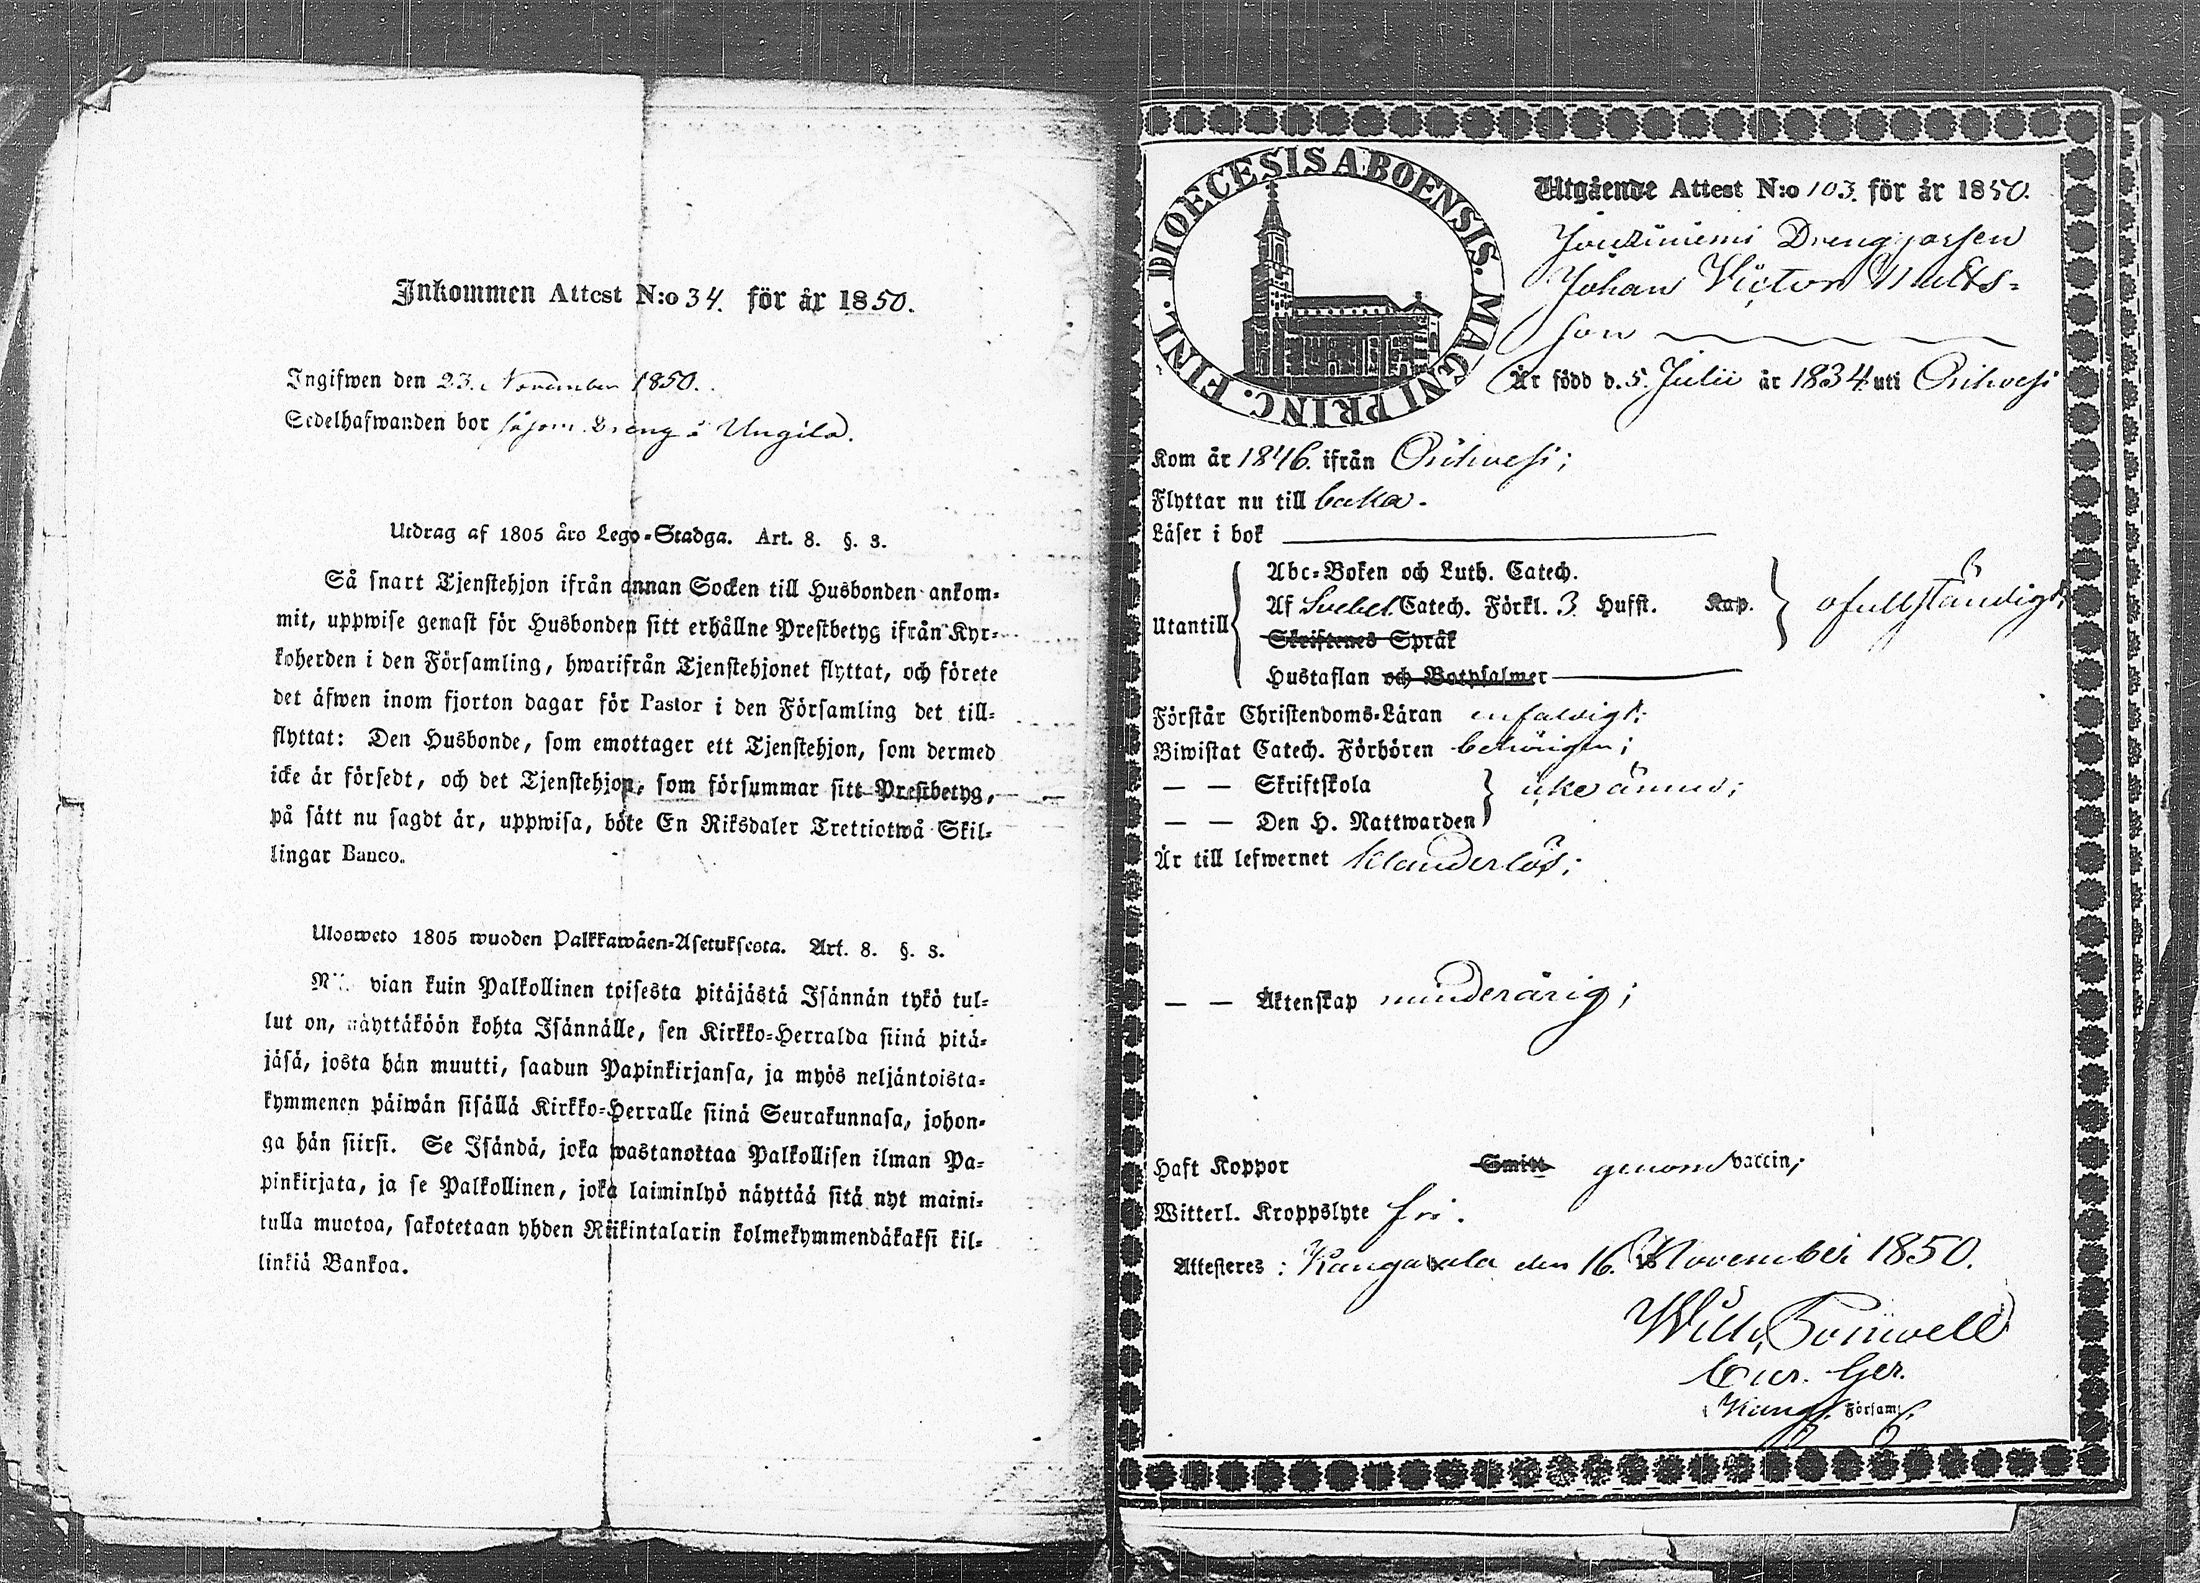 Inkommen Attest N:o 34. för år 1850.
Ingifwen den 23. November 1850.
Sedelhafwanden bor såsom Dreng å Ungila.
Utdrag af 1805 års Lego-Stadga. Art. 8. §. 3.
Så snart Tjenstehjon ifrån annan Socken till Husbonden ankom-
mit, uppwise genast för Husbonden sitt erhållne Prestbetyg ifrån Kyr-
koherden i den Församling, hwarifrån Tjenstehjonet flyttat, och förete
det äfwen inom fjorton dagar för Pastor i den Församling det till-
flyttat: Den Husbonde, som emottager ett Tjenstehjon, som dermed
icke är försedt, och det Tjenstehjon, som försummar sitt Prestbetyg,
på sätt nu sagdt är, uppwisa, böte En Riksdaler Trettiotwå Skil-
lingar Banco.
Ulosweto 1805 wuoden Palkkawäen-Asetuksesta. Art. 8. §. 3.
vian kuin Palkollinen toisesta pitäjästä Isännän tykö tul-
lut on, näyttäköön kohta Isännälle, sen Kirkko-Herralda siinä pitä-
jäsä, josta hän muutti, saadun Papinkirjansa, ja myös neljäntoista-
kymmenen päiwän sisällä Kirkko-Herralle siinä Seurakunnasa, johon-
ga hän siirsi. Se Isändä, joka wastanottaa Palkollisen ilman Pa-
pinkirjata, ja se Palkollinen, joka laiminlyö näyttää sitä nyt maini-
tulla muotoa, sakotetaan yhden Riikintalarin kolmekymmendäkaksi kil-
linkiä Bankoa.
DIOECESIS ABOENSIS. MAGNI PRINC. FINL.
Utgående Attest N:o 103. för år 1850.
Drenggossen
Johan Victor Matts-
son
Är född d. 5. Julii år 1834 uti Orihvesi
Kom år 1846. ifrån Orihvesi;
Flyttar nu till baka.
Läser i bok
Utantill
Abc-Boken och Luth. Catech.
Af Svebel. Catech. Förkl. 3 Hufst. Kap. ofullständigt;
Skriftenes Språk
Hustaflan och Botpsalmer
Förstår Christendoms-Läran enfaldigt;
Biwistat Catech. Förhören behörigen;
— — Skriftskola icke ännu;
— — Den H. Nattwarden
Är till lefwernet klanderlös;
— — Äktenskap minderårig;
Haft Koppor Smitt genom vaccin;
Witterl. Kroppslyte fri.
Attesteres: Kangasala den 16. November 1850.
Wilh.
Cur. Ger.
i Kangs. Församl.